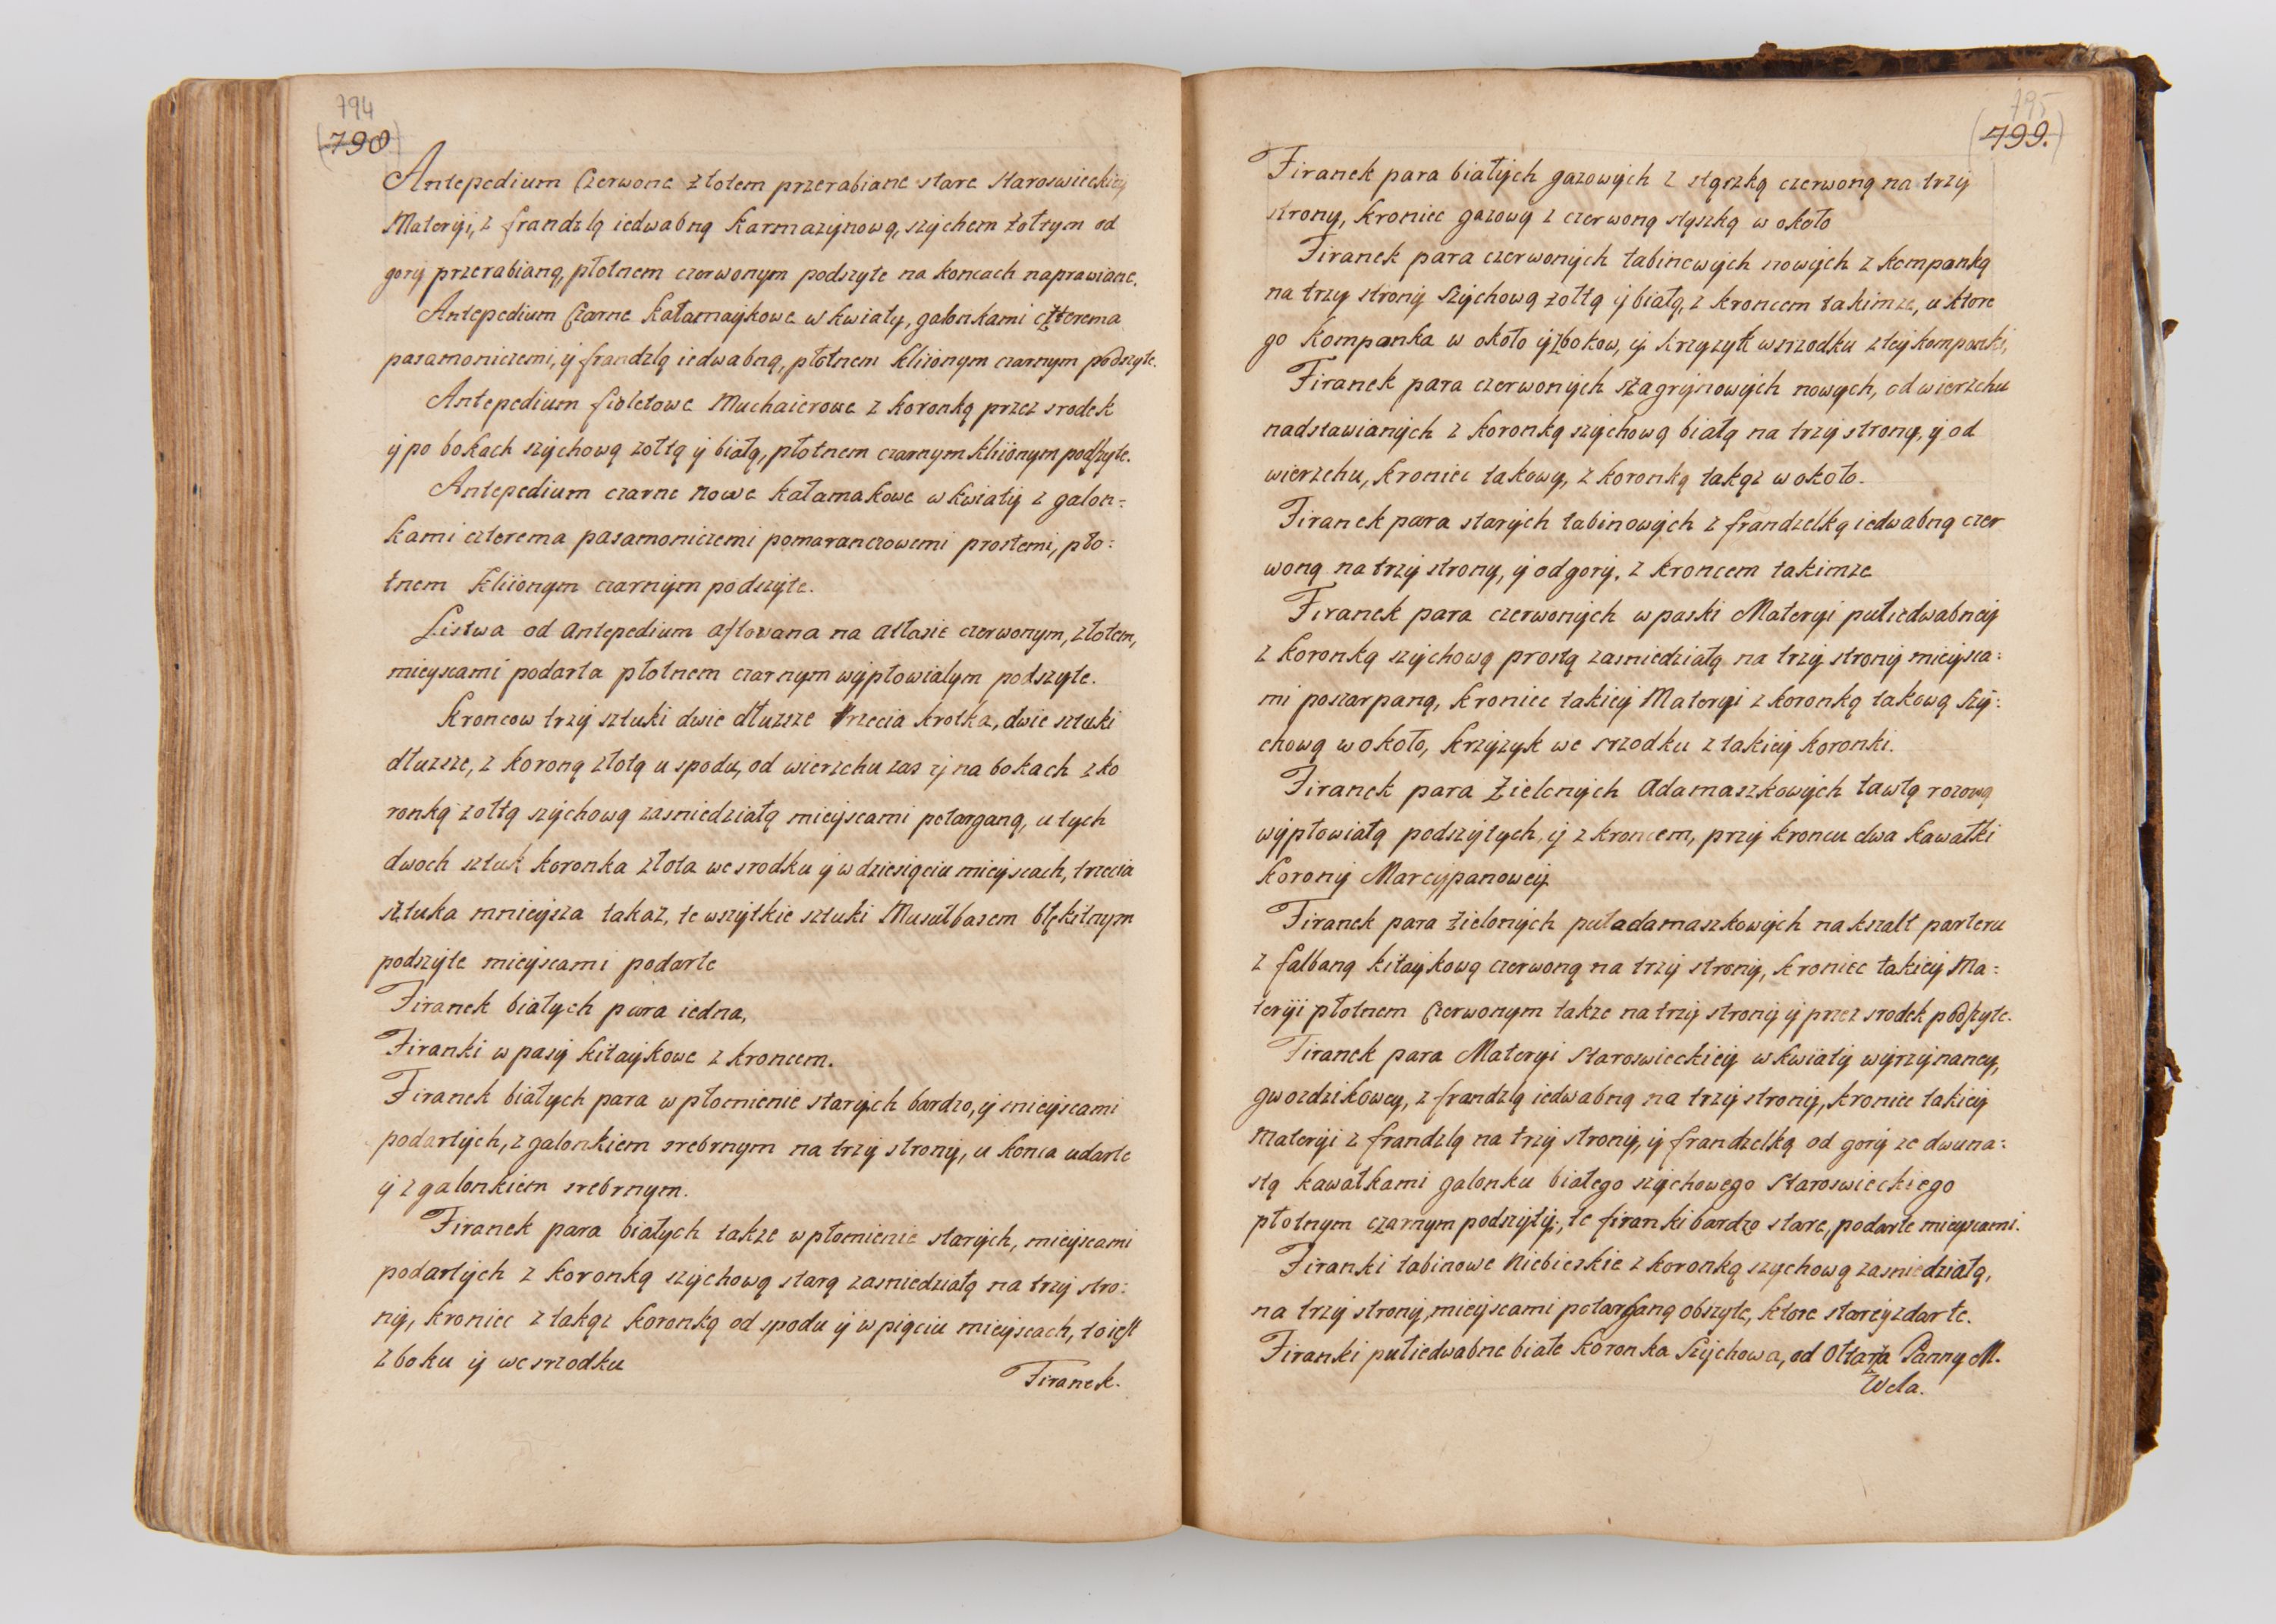 794
(790)
Antepedium Czerwone złotem przerabiane stare Staroswieckiey
Materyi, z frandzlą iedwabną Karmazynową, szychem żołtym od
gory przerabianą, płotnem czerwonym podszyte na koncach naprawiane.
Antepedium Czarne Kałamaykowe w kwiaty, galonkami czterema
pasamoniczemi, y frandzlą iedwabną, płotnem kliionym czarnym podszyte.
Antepedium fioletowe Muchaierowe z koronką przez srodek
y po bokach szychową zołtą y białą, płotnem czarnym kliionym podszyte.
Antepedium czarne nowe kałamakowe w kwiaty z galon=
kami czterema pasamoniczemi pomaranczowemi prostemi, pło=
tnem kliionym czarnym podszyte.
Listwa od Antepedium aftowana na Atłasie czerwonym, złotem,
mieyscami podarta płotnem czarnym wypłowiałym podszyte.
Kroncow trzy sztuki dwie dłuzsze trzecia krotka, dwie sztuki
dłuzsze, z koroną złotą u spodu, od wierzchu zas y na bokach z ko
ronką zołtą szychową zasniedziałą mieyscami potarganą, u tych
dwoch sztuk koronka złota we srodku y w dziesięciu mieyscach, trzecia
sztuka mnieysza takaz, te wszytkie sztuki Musułbasem błękitnym
podszyte mieyscami podarte
Firanek białych para iedna,
Firanki w pasy kitaykowe z kroncem.
Firanek białych para w płomienie starych bardzo, y mieyscami
podartych, z galonkiem srebrnym na trzy strony, u konca udarte
y z galonkiem srebrnym.
Firanek para białych takze w płomienie starych, mieyscami
podartych z koronką szychową starą zasniedziałą na trzy stro=
ny, kroniec z takąz koronką od spodu y w pięciu mieyscach, to iest
z boku y we srzodku
Firanek.
795
(499.)
Firanek para białych gazowych z stąszką czerwoną na trzy
strony, kroniec gazowy z czerwoną stąszką w około
Firanek para czerwonych tabinowych nowych z kompanką
na trzy strony szychową zołtą y białą, z kroncem takimze, u ktore
go kompanka w około y z bokow, y krzyzyk wsrzodku z tey kompanki,
Firanek para czerwonych szagrynowych nowych, od wierzchu
nadstawianych z koronką szychową białą na trzy strony, y od
wierzchu, kroniec takowy, z koronką takąz w około.
Firanek para starych tabinowych z frandzelką iedwabną czer
woną na trzy strony, y od gory, z kroncem takimze
Firanek para czerwonych w paski Materyi pułiedwabney
z koronką szychową prostą zasniedziałą na trzy strony mieysca=
mi poszarpaną, kroniec takiey Materyi z koronką takową szy=
chową w około, krzyzyk we srzodku z takiey koronki.
Firanek para Zielonych Adamaszkowych tawtą rozową
wypłowiałą podszytych, y z kroncem, przy kroncu dwa kawałki
korony Marcypanowey
Firanek para zielonych puładamaszkowych na kszałt parteru
z falbaną kitaykową czerwoną na trzy strony, kroniec takiey Ma=
teryi płotnem Czerwonym takze na trzy strony y przez srodek podszyte.
Firanek para Materyi Staroswieckiey w kwiaty wyrzynaney,
gwozdzikowey, z frandzlą iedwabną na trzy strony, kroniec takiey
Materyi z frandzlą na trzy strony, y frandzelką od gory ze dwuna=
stą kawałkami galonku białego szychowego Staroswieckiego
płotnym czarnym podszyty, te firanki bardzo stare, podarte mieyscami.
Firanki tabinowe Niebieskie z koronką szychową zasniedziałą,
na trzy strony, mieyscami potarganą obszyte, ktore starey zdarte.
Firanki pułiedwabne białe koronka Szychowa, od Ołtarza Panny M.
Wela.